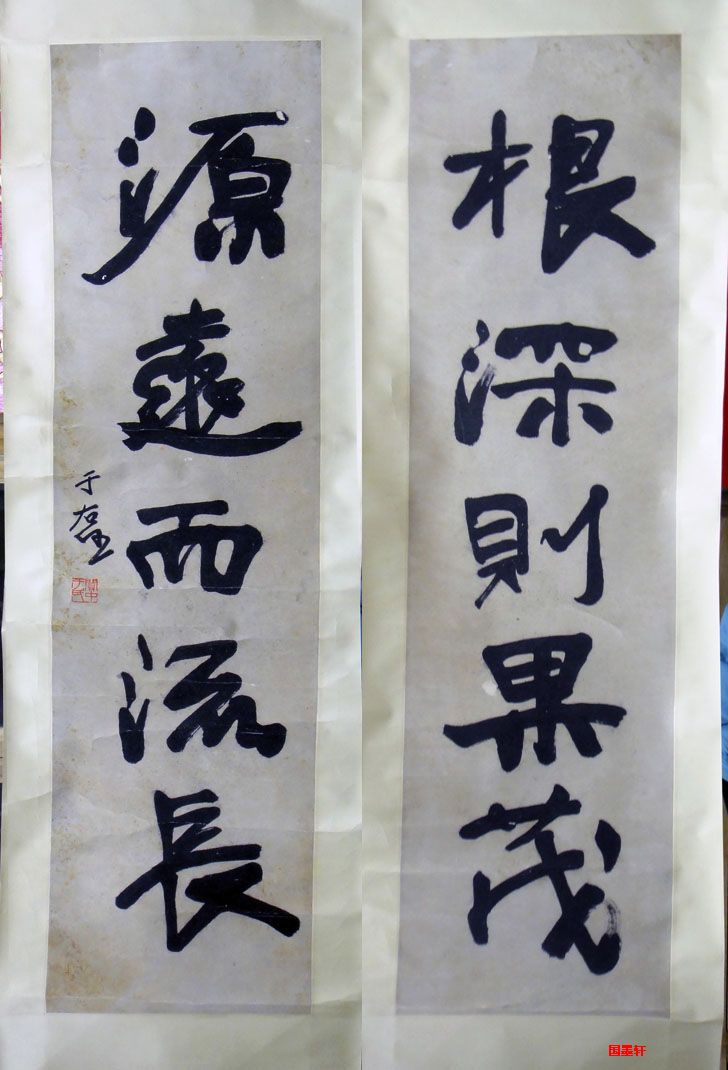 根深則果茂
源遠而流長
于右任
国墨轩